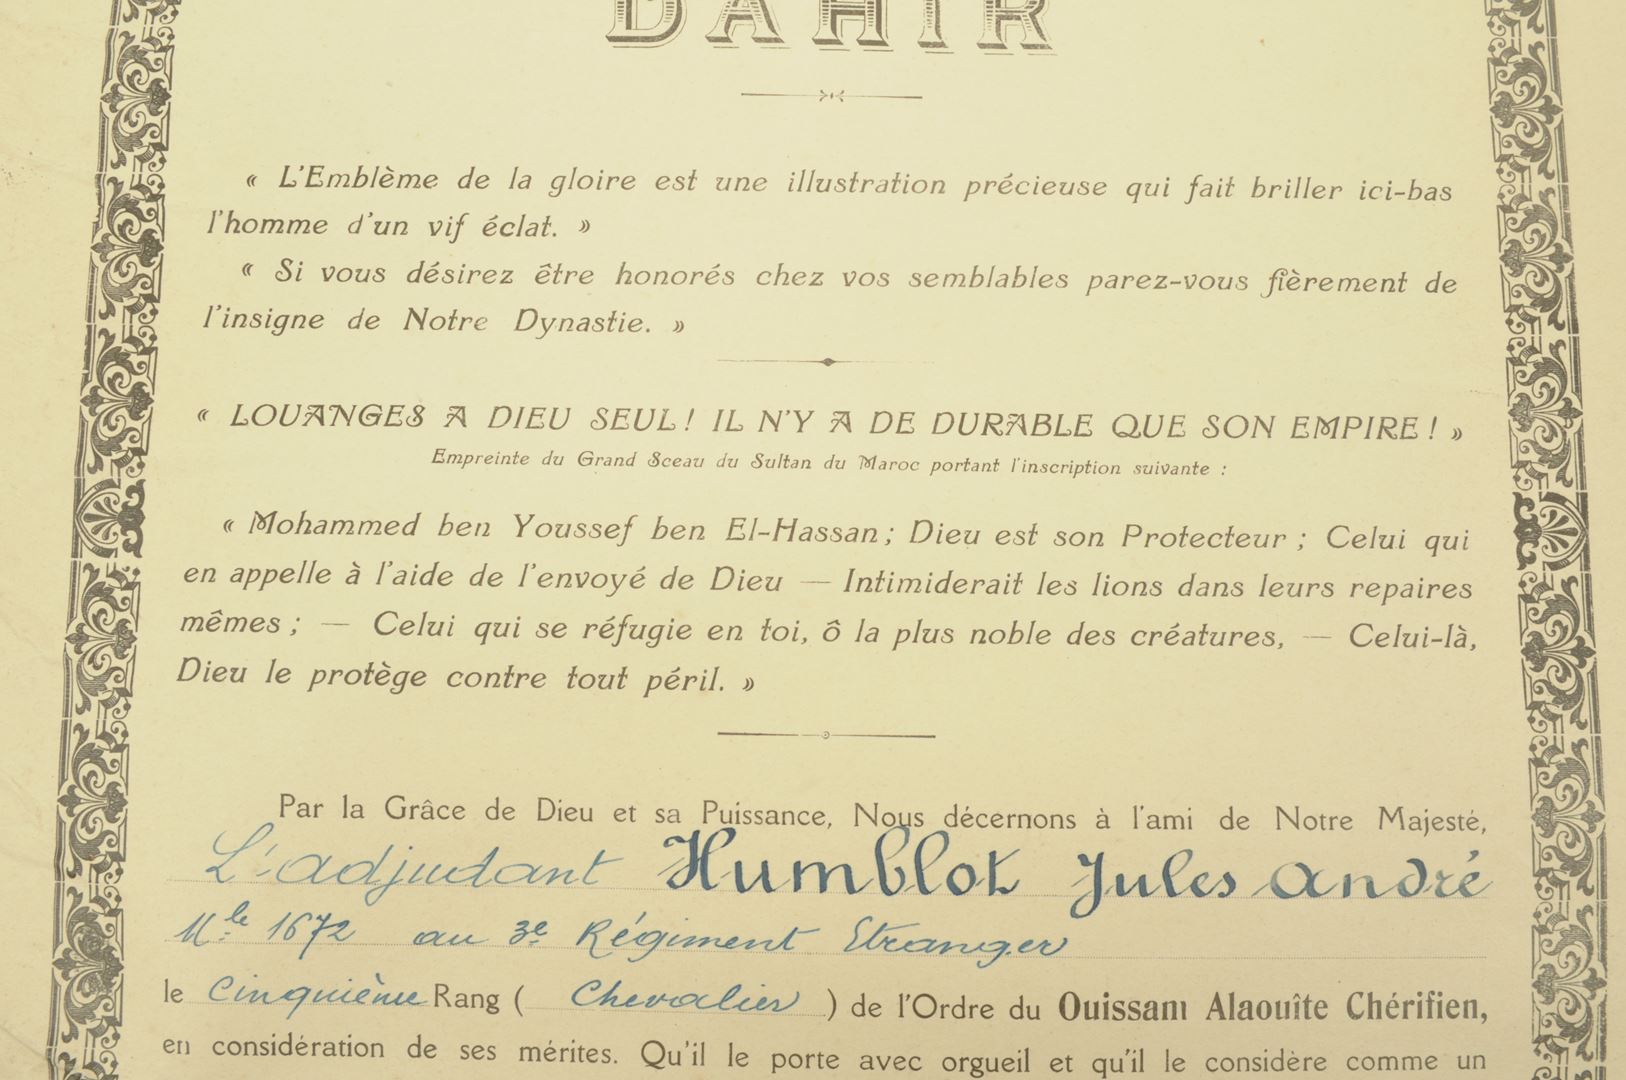 DAHIR
« L'Emblème de la gloire est une illustration précieuse qui fait briller ici-bas
l'homme d'un vif éclat. »
« Si vous désirez être honorés chez vos semblables parez-vous fièrement de
l'insigne de Notre Dynastie. »
« LOUANGES A DIEU SEUL ! IL N'Y A DE DURABLE QUE SON EMPIRE ! »
Empreinte du Grand Sceau du Sultan du Maroc portant l'inscription suivante :
« Mohammed ben Youssef ben El-Hassan ; Dieu est son Protecteur ; Celui qui
en appelle à l'aide de l'envoyé de Dieu — Intimiderait les lions dans leurs repaires
mêmes ; — Celui qui se réfugie en toi, ô la plus noble des créatures, — Celui-là,
Dieu le protège contre tout péril. »
Par la Grâce de Dieu et sa Puissance, Nous décernons à l'ami de Notre Majesté,
L'adjudant Humblot Jules André
Mle 1672 au 3e Régiment Etranger
le Cinquième Rang ( Chevalier ) de l'Ordre du Ouissam Alaouîte Chérifien,
en considération de ses mérites. Qu'il le porte avec orgueil et qu'il le considère comme un